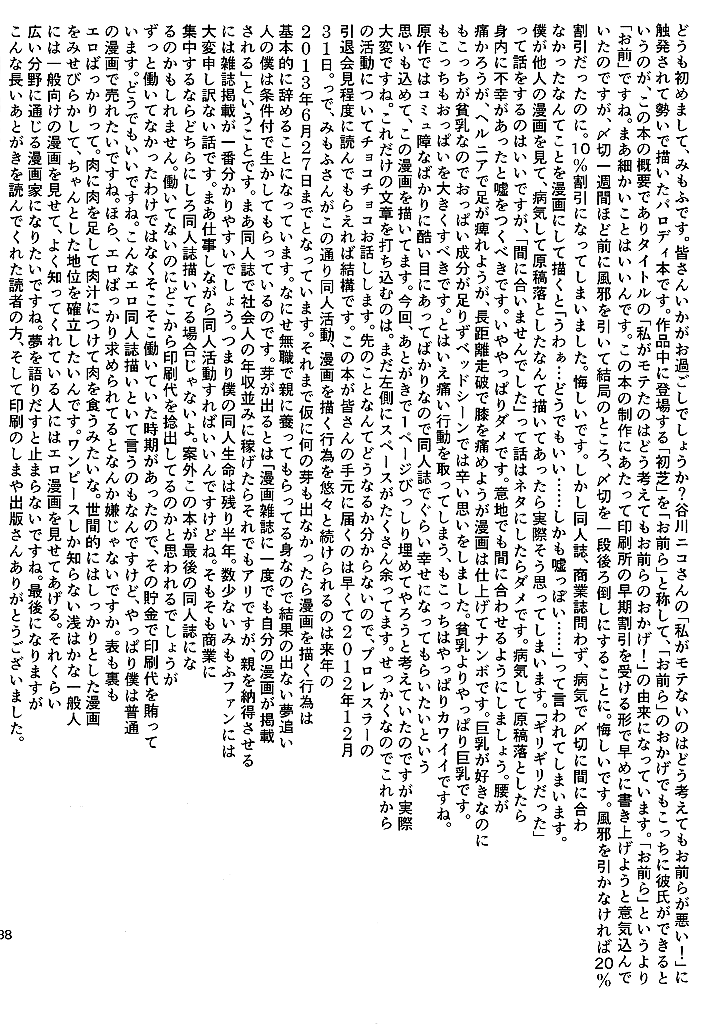 どうも初めまして、みもふです。皆さんいかがお過ごしでしょうか?谷川ニコさんの「私がモテないのはどう考えてもお前らが悪い!」に
触発されて勢いで描いたパロディ本です。作品中に登場する「初芝」を「お前ら」と称して、「お前ら」のおかげでもこっちに彼氏ができると
いうのが、この本の概要でありタイトルの「私がモテたのはどう考えてもお前らのおかげ!」の由来になっています。「お前ら」というより
「お前」ですね。まあ細かいことはいいんです。この本の制作にあたって印刷所の早期割引を受ける形で早めに書き上げようと意気込んで
いたのですが、〆切一週間ほど前に風邪を引いて結局のところ、〆切を一段後ろ倒しにすることに。悔しいです。風邪を引かなければ20%
割引だったのに。10%割引になってしまいました。悔しいです。しかし同人誌、商業誌問わず、病気で〆切に間に合わ
なかったなんてことを漫画にして描くと「うわぁ…どうでもいい……しかも嘘っぽい……」って言われてしまいます。
僕が他人の漫画を見て、病気して原稿落としたなんて描いてあったら実際そう思ってしまいます。『ギリギリだった」
って話をするのはいいですが、「間に合いませんでした」って話はネタにしたらダメです。病気して原稿落としたら
身内に不幸があったと嘘をつくべきです。いややっぱりダメです。意地でも間に合わせるようにしましょう。腰が
痛かろうが、ヘルニアで足が痺れようが、長距離走破で膝を痛めようが漫画は仕上げてナンボです。巨乳が好きなのに
もこっちが貧乳なのでおっぱい成分が足りずベッドシーンでは辛い思いをしました。貧乳よりやっぱり巨乳です。
もこっちもおっぱいを大きくすべきです。とはいえ痛い行動を取ってしまう、もこっちはやっぱりカワイイですね。
原作ではコミュ障なばかりに酷い目にあってばかりなので同人誌でぐらい幸せになってもらいたいという
思いも込めて、この漫画を描いてます。今回、あとがきで1ページびっしり埋めてやろうと考えていたのですが実際
大変ですね。これだけの文章を打ち込むのは。まだ左側にスペースがたくさん余ってます。せっかくなのでこれから
の活動についてチョコチョコお話しします。先のことなんてどうなるか分からないので、プロレスラーの
引退会見程度に読んでもらえれば結構です。この本が皆さんの手元に届くのは早くて2012年12月
31日。っで、みもふさんがこの通り同人活動、漫画を描く行為を悠々と続けられるのは来年の
2013年6月27日までとなっています。それまで仮に何の芽も出なかったら漫画を描く行為は
基本的に辞めることになっています。なにせ無職で親に養ってもらってる身なので結果の出ない夢追い
人の僕は条件付で生かしてもらっているのです。芽が出るとは「漫画雑誌に一度でも自分の漫画が掲載
される」ということです。まあ同人誌で社会人の年収並みに稼げたらそれでもアリですが、親を納得させる
には雑誌掲載が一番分かりやすいでしょう。つまり僕の同人生命は残り半年。数少ないみもふファンには
大変申し訳ない話です。まあ仕事しながら同人活動すればいいんですけどね。そもそも商業に
集中するならどちらにしろ同人誌描いてる場合じゃないよ。案外この本が最後の同人誌にな
るのかもしれません。働いてないのにどこから印刷代を捻出してるのかと思われるでしょうが
ずっと働いてなかったわけではなくそこそこ働いていた時期があったので、その貯金で印刷代を賄って
います。どうでもいいですね。こんなエロ同人誌描いといて言うのもなんですけど、やっぱり僕は普通
の漫画で売れたいですね。ほら、エロばっかり求められてるとなんか嫌じゃないですか。表も裏も
エロばっかりって。肉に肉を足して肉汁につけて肉を食うみたいな。世間的にはしっかりとした漫画
をみせびらかして、ちゃんとした地位を確立したいんです。ワンピースしか知らない浅はかな一般人
には一般向けの漫画を見せて、よく知ってくれている人にはエロ漫画を見せてあげる。それくらい
広い分野に通じる漫画家になりたいですね。夢を語りだすと止まらないですね。最後になりますが
こんな長いあとがきを読んでくれた読者の方、そして印刷のしまや出版さんありがとうございました。
38